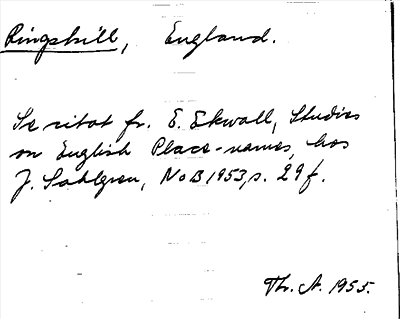 Ringshill, England.
Se citat fr. E. Ekwall, Studies
on English Place-names, hos
J. Sahlgren, NoB 1953, s. 29 f.
Th. A. 1955.